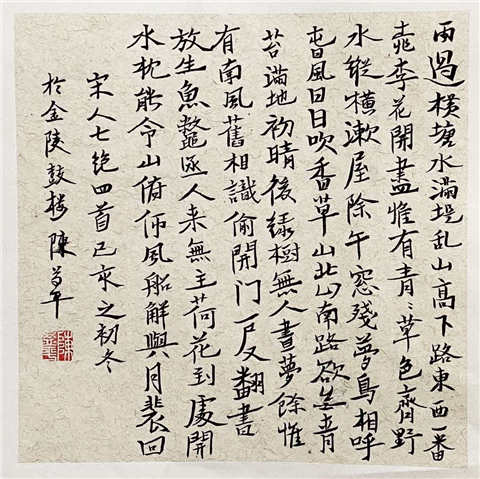 雨過橫塘水滿堤乱山高下路東西一番
桃李花開盡惟有青〻草色齊野
水縱橫漱屋除午窓殘夢鳥相呼
春風日日吹香草山北山南路欲無青
苔滿地初晴後綠樹無人晝夢餘惟
有南風舊相識偷開門戶反翻書
放生魚鼈逐人来無主荷花到處開
水枕能令山俯仰風船解與月裴回
宋人七绝四首己亥之初冬
於金陵鼓楼陳